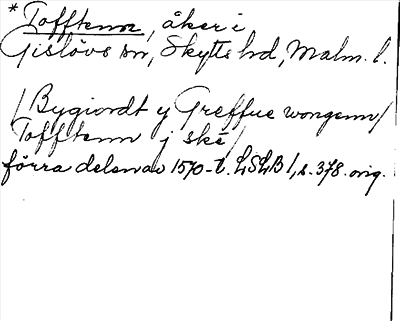 *Tofftenn, åker i
Gislövs sn, Skytts hd, Malm. l.
/Bygiordt y Greffue wongenn/
Tofftenn j skē/
förra delen av 1570-t. LSLB 1, s. 378. orig.